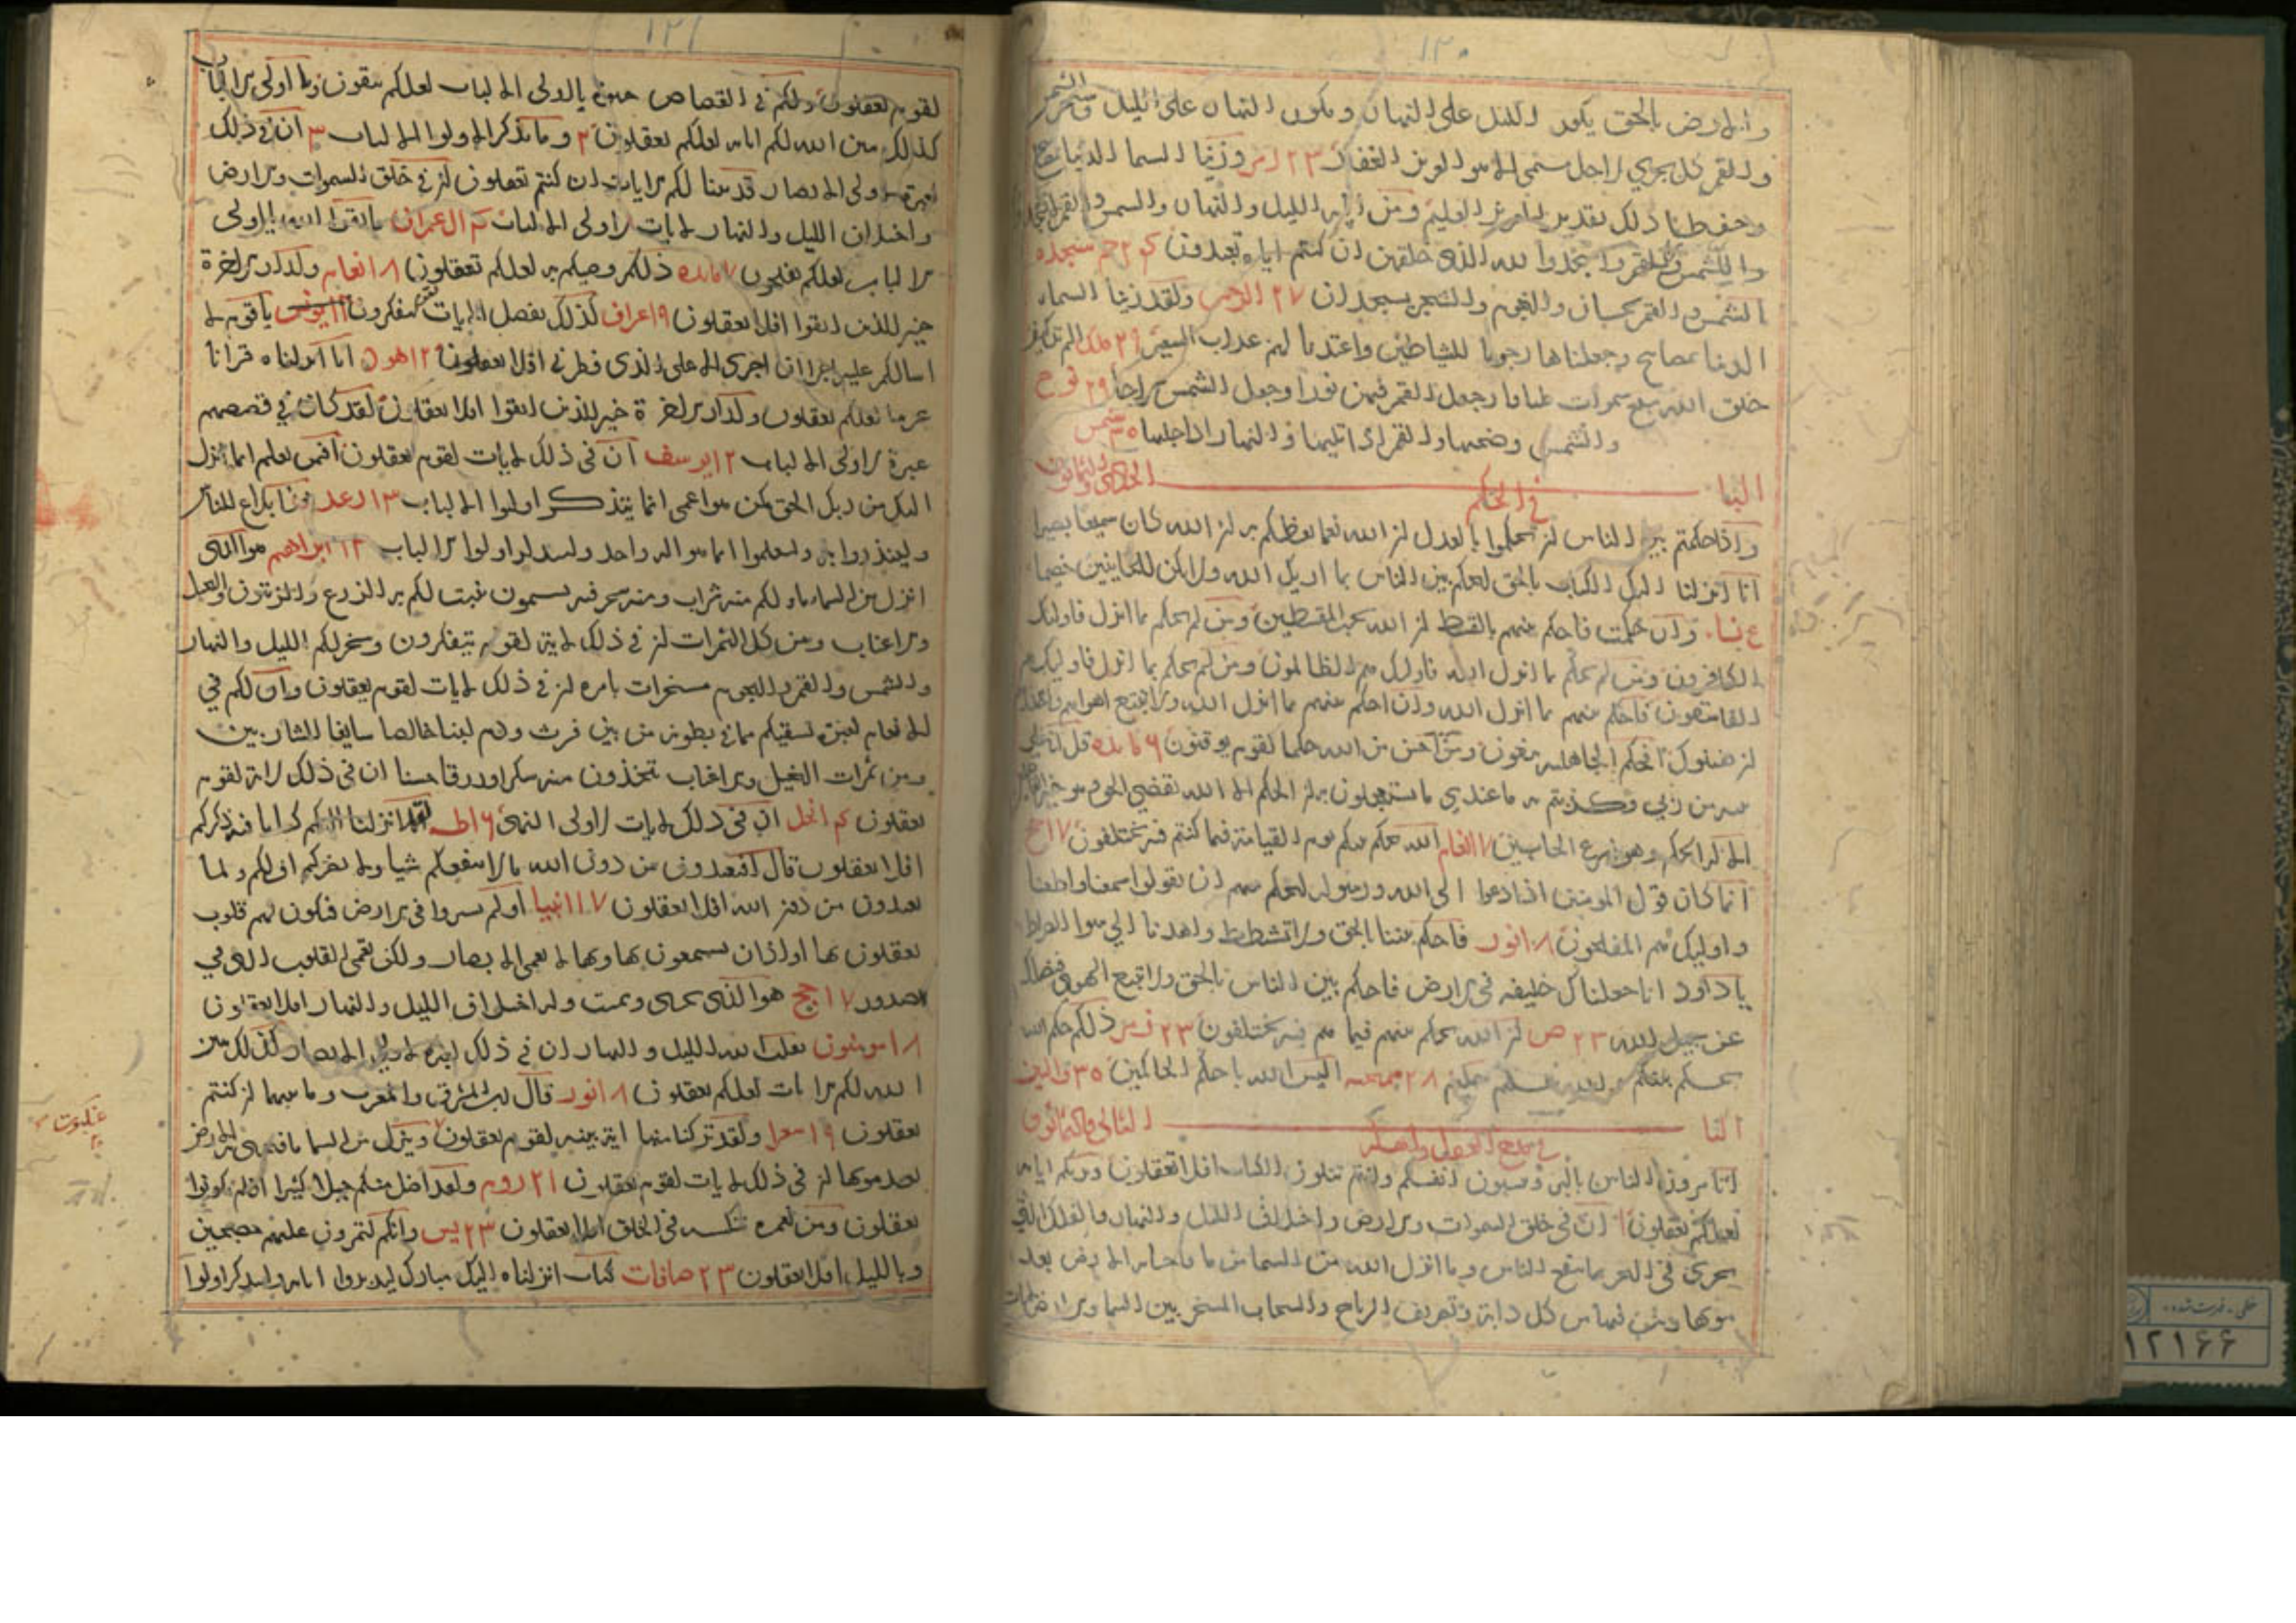 ١٢٠
والارض بالحق يكور الليل على النهار ويكور النهار على الليل وسخر الشمس
والقمر كل يجري لاجل مسمى الا هو العزيز الغفار ٢٣ زمر وزينا السما الدنيا بمصابيح
وحفظا ذلك تقدير العزيز العليم ومن اياته الليل والنهار والشمس والقمر
واسجدوا لله الذي خلقهن ان كنتم اياه تعبدون حم سجده
الشمس والقمر بحسبان والنجم والشجر يسجدان ٢٧ ولقد زينا السماء
الدنيا بمصابيح وجعلناها رجوما للشياطين واعتدنا لهم عذاب السعير ٢٩ ملك الم تر كيف
خلق الله سبع سموات طباقا وجعل القمر فيهن نورا وجعل الشمس سراجا ٢٩ نوح
والشمس وضحيها والقمر اذا تليها والنهار اذا جليها ٣٥ شمس
الباب الحادي والثمانون
في الحكم
واذا حكمتم بين الناس ان تحكموا بالعدل ان الله نعما يعظكم به ان الله كان سميعا بصيرا
انا انزلنا اليك الكتاب بالحق لتحكم بين الناس بما اريك الله ولا تكن للخاينين خصيما
وان حكمت فاحكم بينهم بالقسط ان الله يحب المقسطين ومن لم يحكم بما انزل فاوليك
الكافرون ومن لم يحكم بما انزل الله فاوليك هم الظالمون ومن لم يحكم بما انزل فاوليك هم
الفاسقون فاحكم بينهم بما انزل الله وان احكم بينهم بما انزل الله ولا تتبع اهواهم واحذرهم
ان يفتنوك افحكم الجاهليه يبغون ومن احسن من الله حكما لقوم يوقنون ٦ مايده قل اني على
بينه من ربي وكذبتم به ما عندي ما تستعجلون به ان الحكم الا لله يقضي الحق وهو خير
الا له الحكم وهو اسرع الحاسبين ٧ انعام الله يحكم بينكم يوم القيامة فيما كنتم فيه تختلفون ١٧ حج
انما كان قول المومنين اذا دعوا الى الله ورسوله ليحكم بينهم ان يقولوا سمعنا واطعنا
واوليك هم المفلحون ١٨ نور فاحكم بيننا بالحق ولا تشطط واهدنا الي سوا الصراط
يا داود انا جعلناك خليفه في الارض فاحكم بين الناس بالحق ولا تتبع الهوى فيضلك
عن سبيل الله ٢٣ ص ان الله يحكم بينهم فيما هم فيه يختلفون ٢٣ ذلكم حكم الله
يحكم بينكم والله عليم حكيم ٢٨ اليس الله باحكم الحاكمين ٣٥ والتين
الباب الثاني والثمانون
اتامرون الناس بالبر وتنسون انفسكم وانتم تتلون الكتاب افلا تعقلون ويريكم اياته
لعلكم تعقلون ان في خلق السموات والارض واختلاف الليل والنهار والفلك التي
تجري في البحر بما ينفع الناس وما انزل الله من السما من ما فاحيا به الارض بعد
موتها وبث فيها من كل دابة وتصريف الرياح والسحاب المسخر بين السما والارض لايات
خطى - فهرست شده
١٢١٦٦
١٢١
لقوم يعقلون ولكم في القصاص حيوة يا اولى الالباب لعلكم تتقون يا اولى الالباب
كذلك يبين الله لكم اياته لعلكم تعقلون ٢ وما يذكر الا اولوا الالباب ٣ ان في ذلك
لعبرة لاولى الابصار قد بينا لكم الايات ان كنتم تعقلون ان في خلق السموات والارض
واختلاف الليل والنهار لايات لاولى الالباب ٤ ال عمران فاتقوا الله يا اولى
الالباب لعلكم تفلحون ٧ مايده ذلكم وصيكم به لعلكم تعقلون ٨ انعام وللدار الاخرة
خير للذين اتقوا افلا تعقلون ٩ اعراف كذلك نفصل الايات لقوم يتفكرون ١١ يونس يا قوم لا
اسالكم عليه اجرا ان اجرى الا على الذى فطرني افلا تعقلون ١٢ هود انا انزلناه قرانا
عربيا لعلكم تعقلون ولدار الاخرة خير للذين اتقوا افلا تعقلون لقد كان في قصصهم
عبرة لاولى الالباب ١٢ يوسف ان في ذلك لايات لقوم يعقلون افمن يعلم انما انزل
اليك من ربك الحق كمن هو اعمى انما يتذكر اولوا الالباب ١٣ رعد هذا بلاغ للناس
ولينذروا به وليعلموا انما هو اله واحد وليذكر اولوا الالباب ١٣ ابراهيم هو الذى
انزل من السماء ماء لكم منه شراب ومنه شجر فيه تسيمون ينبت لكم به الزرع والزيتون والنخيل
والاعناب ومن كل الثمرات ان في ذلك لاية لقوم يتفكرون وسخر لكم الليل والنهار
والشمس والقمر والنجوم مسخرات بامره ان في ذلك لايات لقوم يعقلون وان لكم في
الانعام لعبرة نسقيكم مما في بطونه من بين فرث ودم لبنا خالصا سايغا للشاربين
ومن ثمرات النخيل والاعناب تتخذون منه سكرا ورزقا حسنا ان في ذلك لاية لقوم
يعقلون ٤ نحل ان في ذلك لايات لاولى النهى ١٦ طه لقد انزلنا اليكم كتابا فيه ذكركم
افلا تعقلون قال افتعبدون من دون الله ما لا ينفعكم شيا ولا يضركم اف لكم ولما
تعبدون من دون الله افلا تعقلون ١٧ انبيا اولم يسيروا في الارض فتكون لهم قلوب
يعقلون بها او اذان يسمعون بها فانها لا تعمى الابصار ولكن تعمى القلوب التي في
الصدور ١٧ حج هو الذى يحيى ويميت وله اختلاف الليل والنهار افلا تعقلون
١٨ مومنون يقلب الله الليل والنهار ان في ذلك لعبرة لاولى الابصار كذلك يبين
الله لكم الايات لعلكم تعقلون ١٨ نور قال رب المشرق والمغرب وما بينهما ان كنتم
تعقلون ١٩ شعرا ولقد تركنا منها اية بينه لقوم يعقلون وينزل من السما ما فيحيى به الارض
بعد موتها ان في ذلك لايات لقوم يعقلون ٢١ روم ولقد اضل منكم جبلا كثيرا افلم تكونوا
تعقلون ومن نعمره ننكسه في الخلق افلا يعقلون ٢٣ يس وانكم لتمرون عليهم مصبحين
وبالليل افلا تعقلون ٢٣ صافات كتاب انزلناه اليك مبارك ليدبروا اياته وليتذكر اولوا
عنكبوت
٢٠